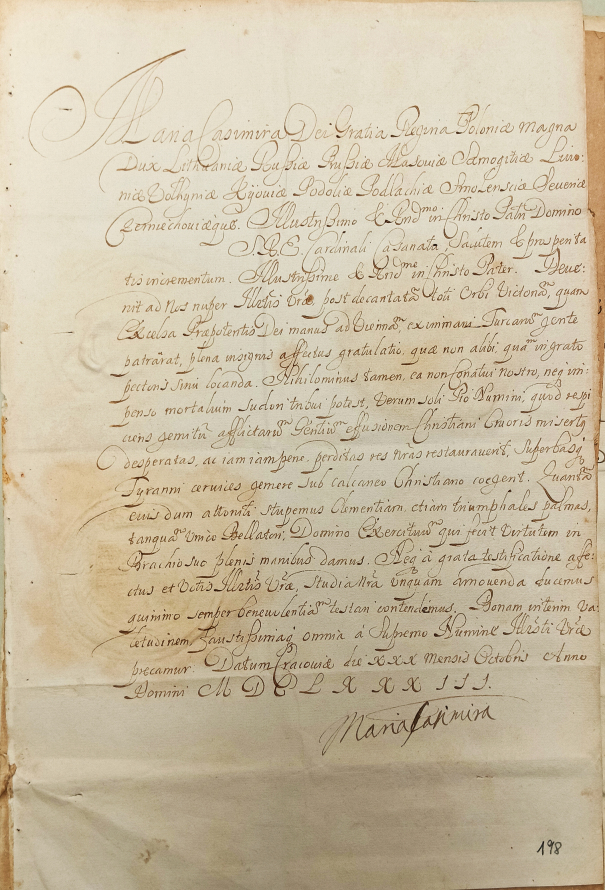 Maria Casimira Dei Gratia Regina Poloniæ Magna
Dux Lithuaniæ Russiæ Prussiæ Masoviæ Samogitiæ Livo:
niæ Volhyniæ Kijoviæ Podoliæ Podlachiæ Smolensciæ Severiæ
Czerniechoviæqúe. Illustrissimo & Rnd^mo in Christo Patri Domino
S.R.E. Cardinali Casanata, Salutem & prosperita
tis incrementum. Illustrissime & Rnd^me in Christo Pater. Deve:
nit ad Nos nuper Illrtis Vræ post decantatã toti Orbi Victoriã, quam
Excelsa Præpotentis Dei manus ad Viennã, ex immani Turcarũ gente
patrârat, plena insignis affectus gratulatio, quæ non alibi, quã in grato
pectoris sinu locanda. Nihilominus tamen, ea non conatui Nostro, neq im:
penso mortalium sudori tribui potest, Verum soli Pio Numini, quod respi
ciens gemitũ afflictarũ Gentiũ effusionem Christiani Cruoris misertq
desperatas, ac iam iam pene perditas res Nras restauraverit, Superbasq
Tyranni cervices gemere sub calcaneo Christiano coegerit. Quantã
eius dum attoniti stupemus Clementiam, etiam triumphales palmas,
tanquã Unico Bellatori, Domino Exercituũ qui fecit virtutem in
Brachio suo plenis manibus damus. Neq à grata testificatione affe:
ctus et Votis Illrtis Vræ, Studia Nra Unquam amovenda ducemus
quinimo semper benevolentiã testari contendemus. Bonam interim Va:
letudinem Faustissimaq omnia á Supremo Numine Illrsti Vræ
precamur. Datum Cracoviæ die XXX Mensis Octobris Anno
Domini M D C L X X X I I I.
Maria Casimira
198